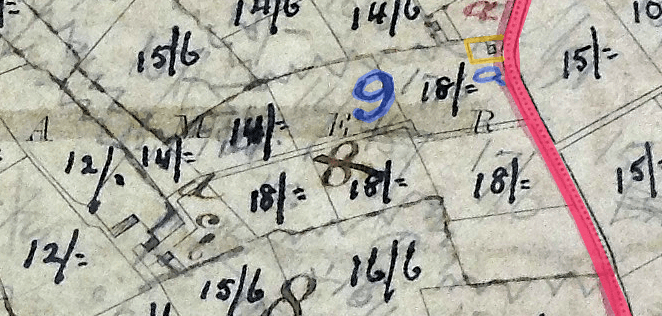 14/6 14/6 a 10
15/6 9 18/= a 15/=
A M 14/= E R
12/= 14/= 8 15/
18/= 18/= 18/=
12/= 16/6
15/6 8